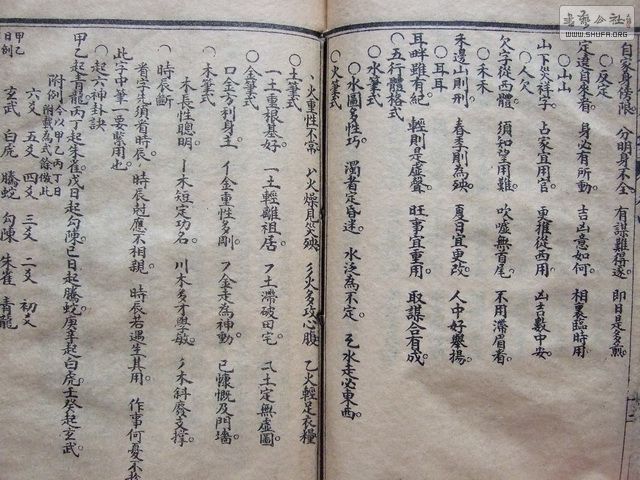 自家身後限 分明身不全 有謀難得遂 即日是多
○反定
定遠自來看 身必有所動 吉凶意如何 相裏臨時用
○山山
山下炎祥字 占家宜用官 更推從西用 凶吉數中安
○人欠
欠字從西體 須知望用難 吹噓無首尾 不用滯眉看
○禾木
禾邊山則刑 春季則為殃 夏日宜更改 人中好舉揚
○耳耳
耳畔雖有紀 輕則是虛聲 旺事宜重用 取謀合有成
○五行體格式
○水筆式
水圓多性巧 濁者定昏迷 水泛為不定 水走必東西
○火筆式
火重性不常 火燥見災殃 火多攻心腹 火輕足衣糧
○土筆式
一土重根基好 一土輕離祖居 フ土滯破田宅 土定無虛圖
○金筆式
口金方利身主 金重性多剛 フ金走為神動 已慷慨及門墻
○木筆式
木長性聰明 一木短定功名 川木多才學敏 木斜廢支撐
○時辰斷
看字先須看時辰 時辰尅應不相親 時辰若遇生其用 作事何憂不
此字中筆一要緊用也
○起六神卦訣
甲乙起青龍丙丁起朱雀戊日起勾陳己日起騰蛇庚辛起白虎壬癸起玄武
附例今以甲乙丙丁日附載為式餘倣此
甲乙日例
六爻 五爻 四爻 三爻 二爻 初爻
玄武 白虎 騰蛇 勾陳 朱雀 青龍
書藝公社
WWW.SHUFA.ORG